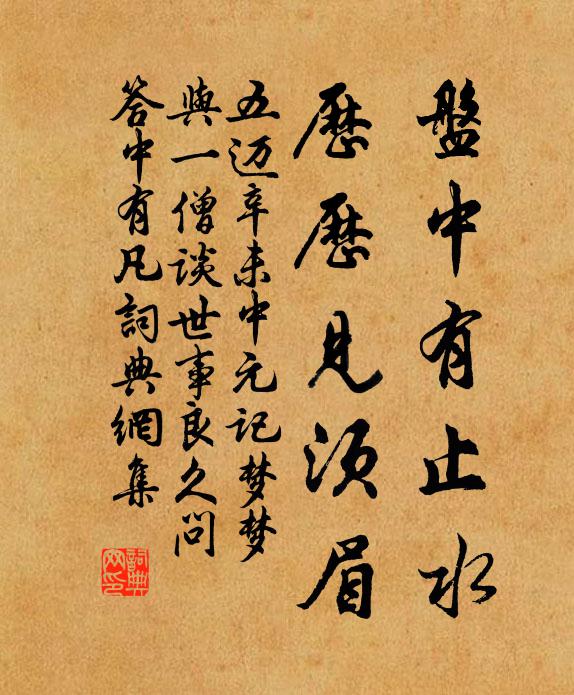 盤中有止水
歷歷見須眉
五迈辛未中元记梦梦
與一僧談世事良久问
答中有凡詞典網集
詞典
网印